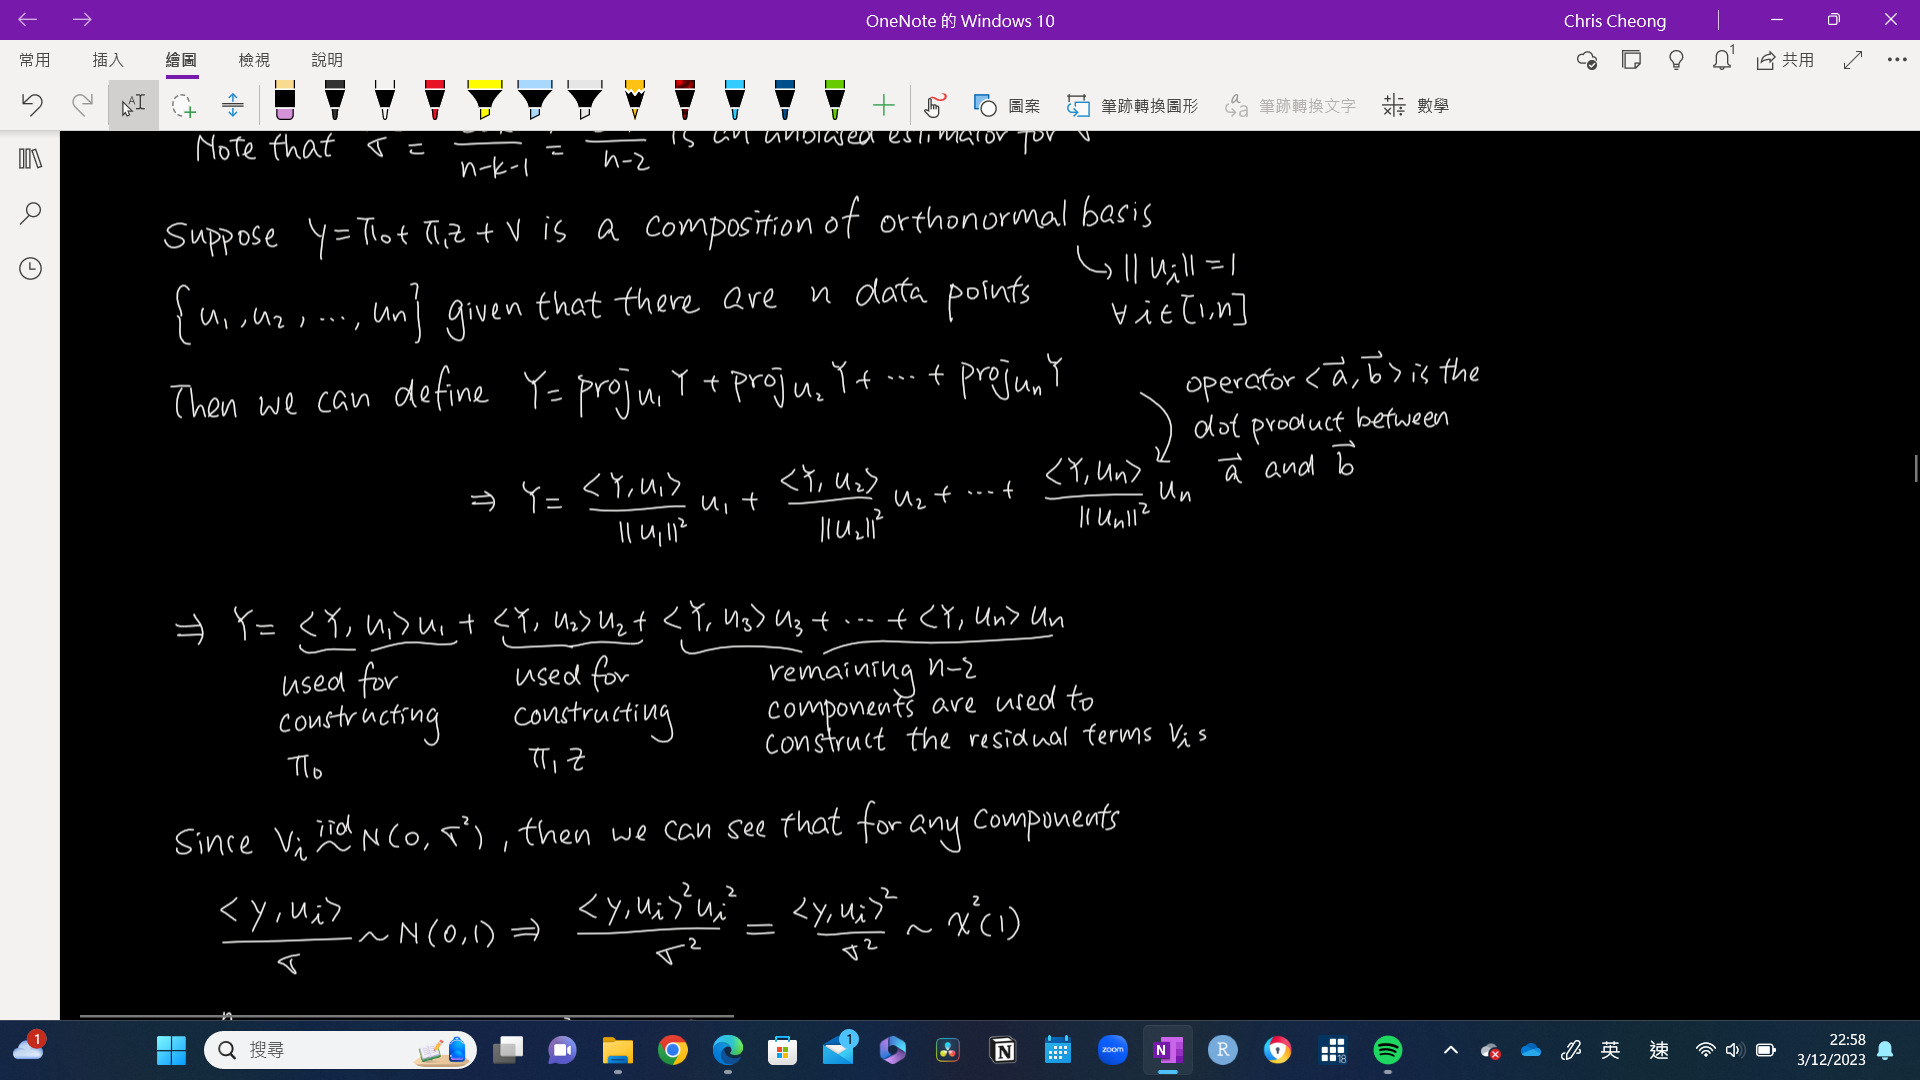 OneNote 的 Windows 10
Chris Cheong
常用 插入 繪圖 檢視 說明
1
共用
圖案 筆跡轉換圖形 筆跡轉換文字 數學
Note that σ = / n-k-1 = / n-2 is an unbiased estimator for σ
Suppose Y = π₀ + π₁z + v is a composition of orthonormal basis
→ ||uᵢ|| = 1
∀ i ∈ [1,n]
{u₁, u₂, ..., uₙ} given that there are n data points
Then we can define Y = proj u₁ Y + proj u₂ Y + ... + proj uₙ Y
operator <a⃗, b⃗> is the
dot product between
a⃗ and b⃗
⇒ Y = <Y, u₁> / ||u₁||² u₁ + <Y, u₂> / ||u₂||² u₂ + ... + <Y, uₙ> / ||uₙ||² uₙ
⇒ Y = <Y, u₁>u₁ + <Y, u₂>u₂ + <Y, u₃>u₃ + ... + <Y, uₙ>uₙ
used for
constructing
π₀
used for
constructing
π₁z
remaining n-2
components are used to
construct the residual terms vᵢs
Since vᵢ iid ~ N(0, σ²), then we can see that for any components
<y, uᵢ> / σ ~ N(0,1) ⇒ <y, uᵢ>²uᵢ² / σ² = <y, uᵢ>² / σ² ~ χ²(1)
n
1
搜尋
1
zoom
N
R
18
英
速
22:58
3/12/2023